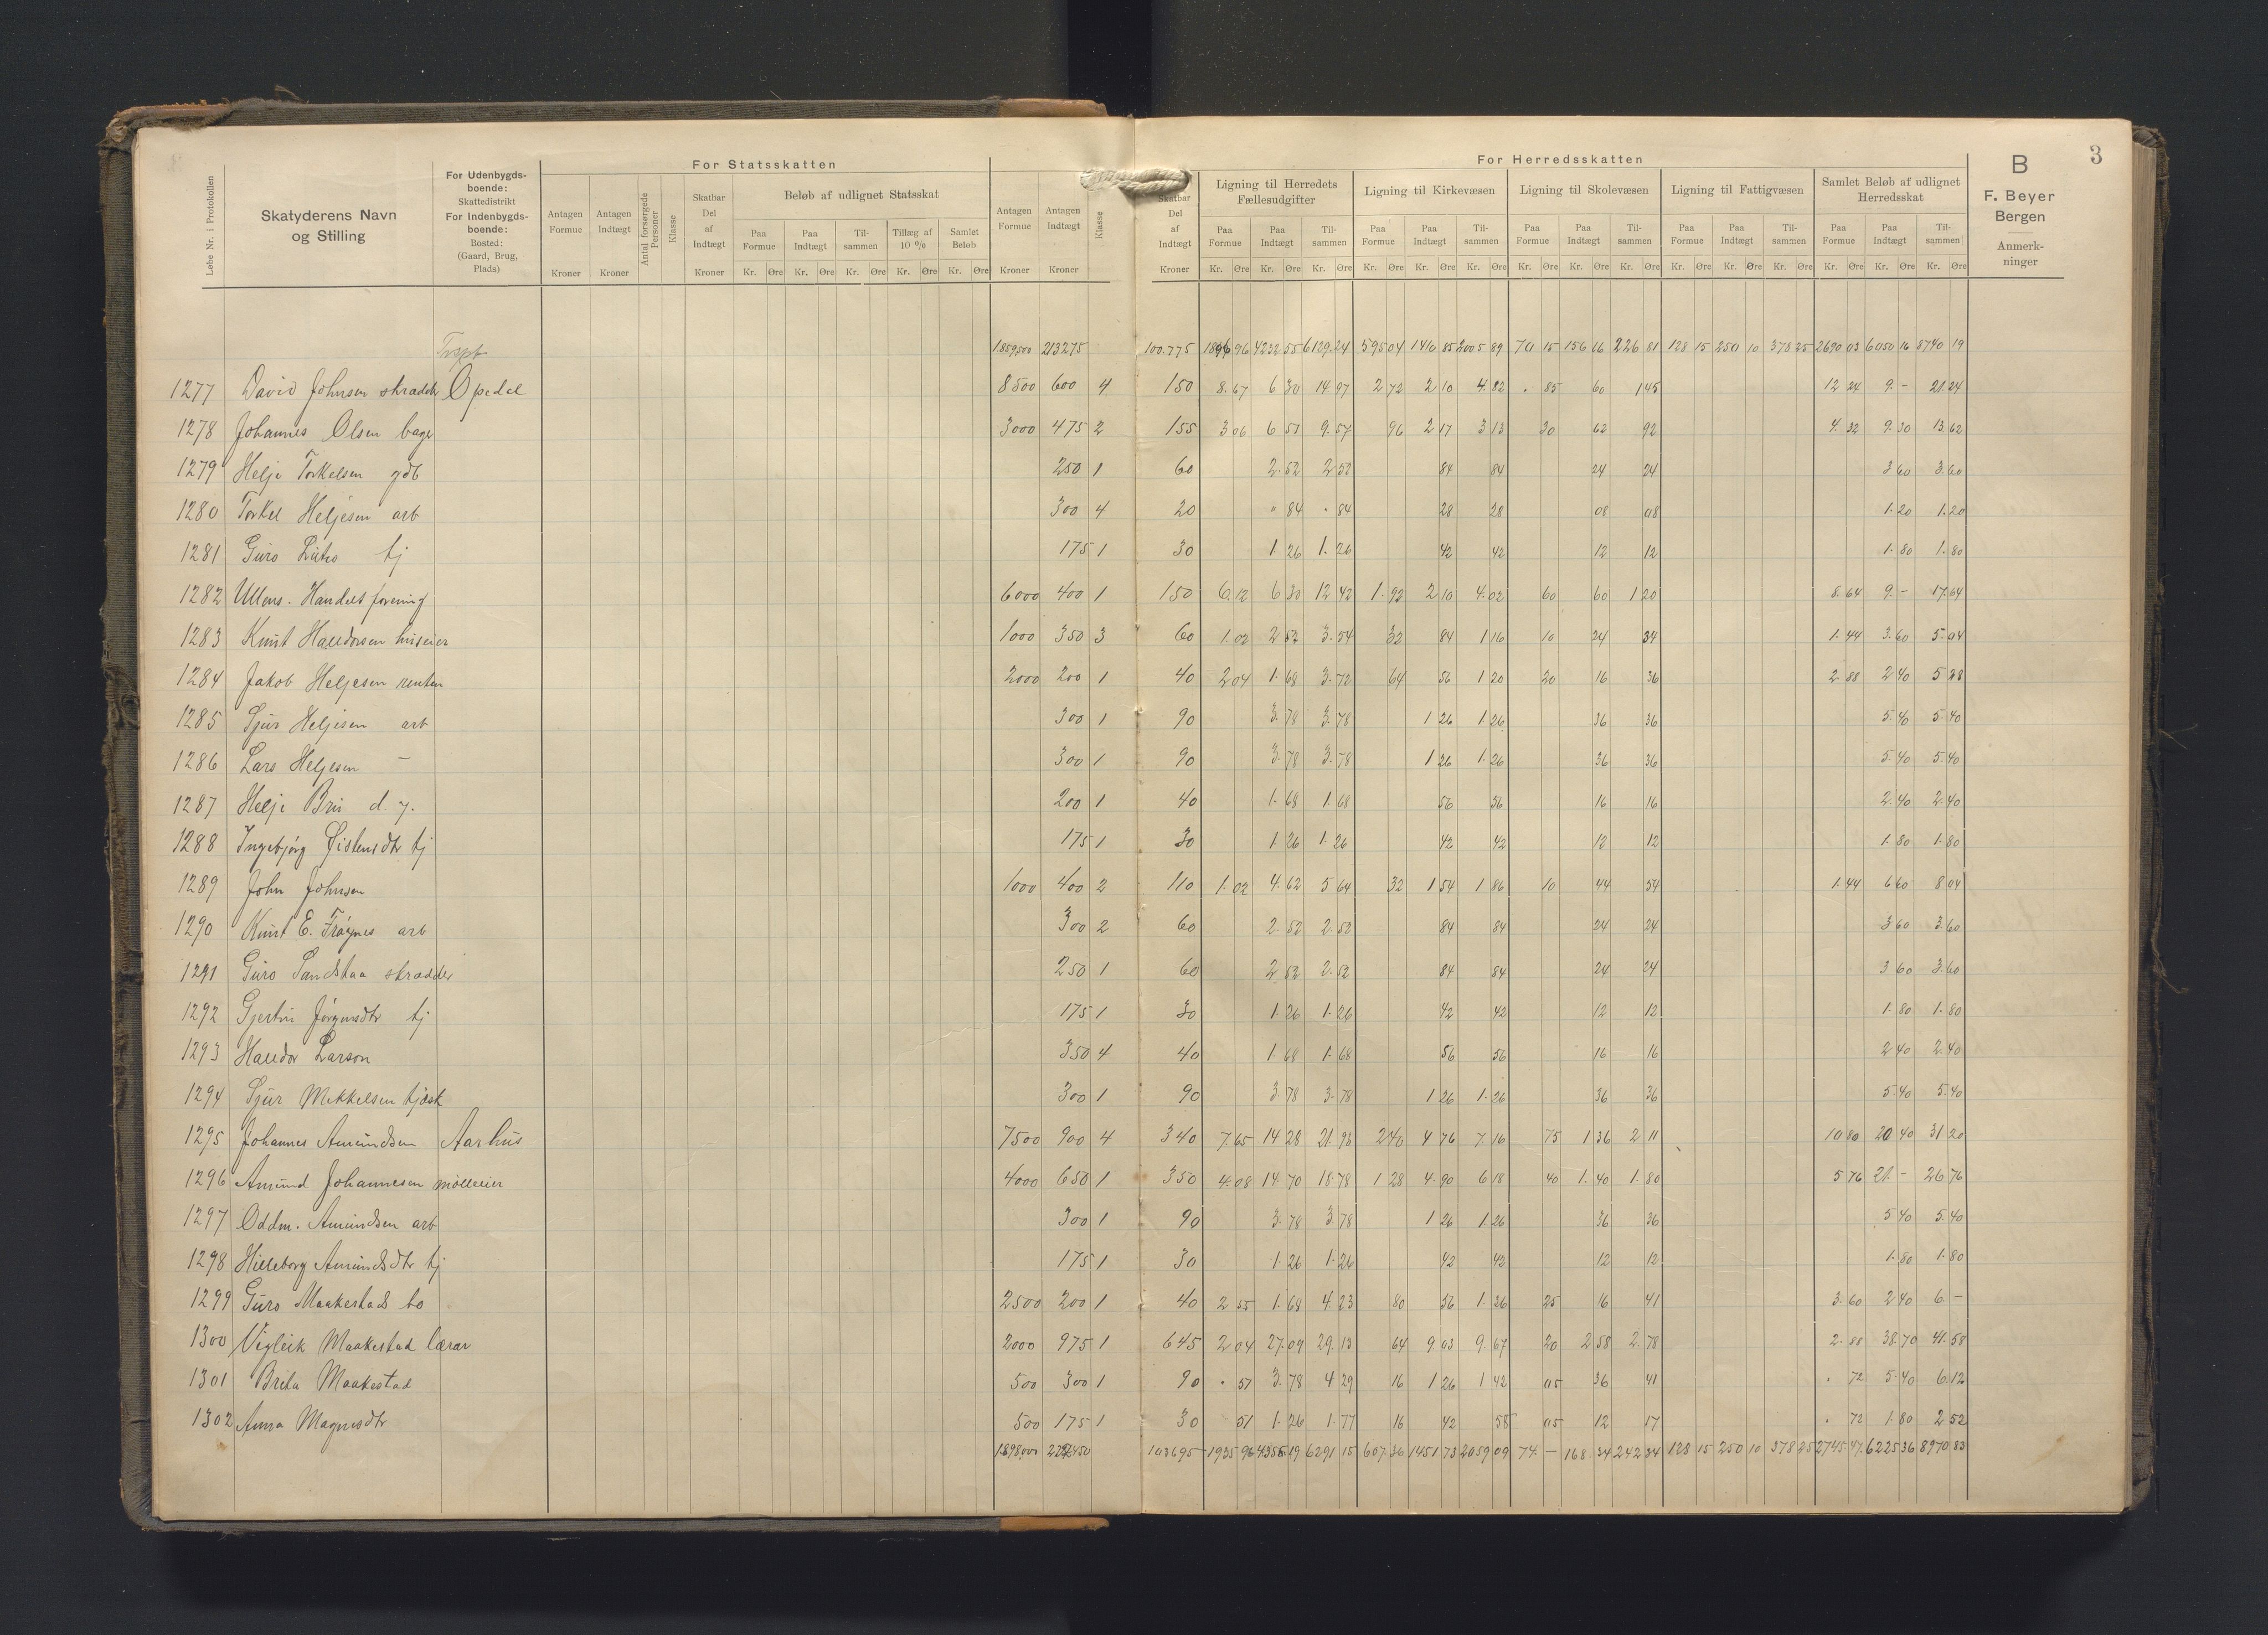 3
For Statsskatten
For Herredsskatten
B
F. Beyer
Bergen
Anmerkninger
Løbe Nr. i Protokollen
Skatyderens Navn og Stilling
For Udenbygdsboende: Skattedistrikt
For Indenbygdsboende: Bosted: (Gaard, Brug, Plads)
Antagen Formue Kroner
Antagen Indtægt Kroner
Antal forsørgede Personer
Klasse
Skatbar Del af Indtægt Kroner
Beløb af udlignet Statsskat
Paa Formue Paa Indtægt Tilsammen Tillæg af 10 % Samlet Beløb
Kr. Øre Kr. Øre Kr. Øre Kr. Øre Kr. Øre
Antagen Formue Kroner
Antagen Indtægt Kroner
Klasse
Skatbar Del af Indtægt Kroner
Ligning til Herredets Fællesudgifter
Ligning til Kirkevæsen
Ligning til Skolevæsen
Ligning til Fattigvæsen
Samlet Beløb af udlignet Herredsskat
Paa Formue Paa Indtægt Tilsammen Paa Formue Paa Indtægt Tilsammen Paa Formue Paa Indtægt Tilsammen Paa Formue Paa Indtægt Tilsammen Paa Formue Paa Indtægt Tilsammen
Kr. Øre Kr. Øre Kr. Øre Kr. Øre Kr. Øre Kr. Øre Kr. Øre Kr. Øre Kr. Øre Kr. Øre Kr. Øre Kr. Øre Kr. Øre Kr. Øre Kr. Øre
Trspt 1859500 213275 100.775 1896 96 4232 55 6129.24 595 04 1416 85 2005 89 70 15 156 66 226 81 128 15 250 10 378 25 2690 03 6050 16 8740 19
1277 David Johnsen skrædder Opedal 8500 600 4 150 8.67 6 30 14 97 2 72 2 10 4.82 . 85 60 1 45 12 24 9.- 21.24
1278 Johannes Olsen bager 3000 475 2 155 3 06 6 51 9.57 96 2 17 3 13 30 62 92 4.32 9.30 13.62
1279 Helje Torkelsen gdb 250 1 60 2.52 2 52 84 84 24 24 3 60 3.60
1280 Torkel Heljesen arb 300 4 20 " 84 . 84 28 28 08 08 1.20 1.20
1281 Guro tj 175 1 30 1.26 1.26 42 42 12 12 1.80 1.80
1282 Ullens. Handelsforening 6000 400 1 150 6.12 6 30 12 42 1.92 2 10 4.02 60 60 1 20 8.64 9.- 17.64
1283 Knut Halldorsen huseier 1000 350 3 60 1.02 2 52 3.54 32 84 1 16 10 24 34 1.44 3.60 5.04
1284 Jakob Heljesen renten 2000 200 1 40 2 04 1.68 3.72 64 56 1 20 20 16 36 2 88 2 40 5 28
1285 Sjur Heljesen arb 300 1 90 3.78 3.78 1 26 1.26 36 36 5.40 5.40
1286 Lars Heljesen — 300 1 90 3.78 3.78 1 26 1.26 36 36 5.40 5.40
1287 Helje d.y. 200 1 40 1.68 1.68 56 56 16 16 2.40 2.40
1288 Ingebjørg tj 175 1 30 1.26 1.26 42 42 12 12 1.80 1.80
1289 John Johnsen 1000 400 2 110 1.02 4.62 5 64 32 1 54 1 86 10 44 54 1.44 6 60 8 04
1290 Knut E. Frøynes arb 300 2 60 2.52 2.52 84 84 24 24 3 60 3.60
1291 Guro Sandstaa skrædder 250 1 60 2 52 2.52 84 84 24 24 3 60 3.60
1292 Gjertri Jørgensdtr tj 175 1 30 1.26 1.26 42 42 12 12 1.80 1.80
1293 Halldor Larson 350 4 40 1.68 1.68 56 56 16 16 2 40 2.40
1294 Sjur Mikkelsen 300 1 90 3.78 3.78 1 26 1.26 36 36 5.40 5.40
1295 Johannes Amundsen Aarhus 7500 900 4 340 7.65 14 28 21.93 2 40 4 76 7.16 75 1 36 2 11 10 80 20 40 31 20
1296 Amund Johannesen mølleeier 4000 650 1 350 4.08 14.70 18.78 1 28 4.90 6 18 40 1.40 1.80 5 76 21.- 26 76
1297 Oddm. Amundsen arb 300 1 90 3.78 3.78 1 26 1.26 36 36 5 40 5.40
1298 Hilleborg Amundsdtr tj 175 1 30 1.26 1.26 42 42 12 12 1.80 1.80
1299 Guro Maakestad bo 2500 200 1 40 2 55 1.68 4.23 80 56 1.36 25 16 41 3.60 2 40 6.-
1300 Vigleik Maakestad lærar 2000 975 1 645 2 04 27.09 29.13 64 9.03 9.67 20 2 58 2.78 2.88 38.70 41.58
1301 Brita Maakestad 500 300 1 90 . 51 3.78 4 29 16 1 26 1 42 05 36 41 . 72 5.40 6.12
1302 Anna Magnusdtr 500 175 1 30 51 1.26 1.77 16 42 58 05 12 17 . 72 1.80 2 52
1898000 103695 1935 96 4355 19 6291 15 607 36 1451 73 2059 09 74.- 168.34 242 34 128 15 250 10 378 25 2745 47 6225 36 8970 83